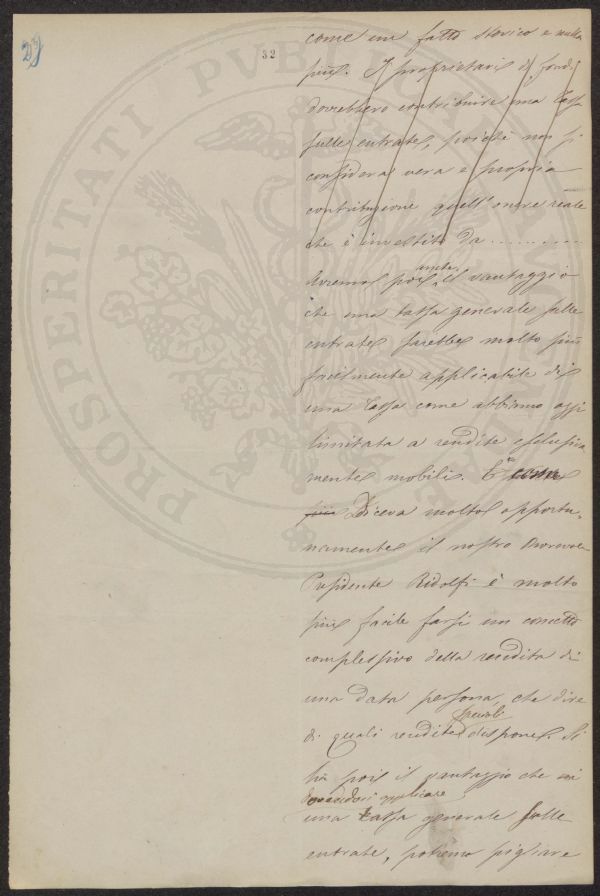 29
32
PROSPERITATI PVBLICAE AVGENDAE
come un fatto storico e nulla
più. I proprietari di fondi
dovrebbero contribuire una tassa
sulle entrate, poichè non si
considera vera e propria
contribuzione quell'onere reale
che è investito da ..........
Avremo poi anche il vantaggio
che una tassa generale sulle
entrate sarebbe molto più
facilmente applicabile di
una tassa come abbiamo oggi
limitata a rendite esclusiva
mente mobili. E come
più Diceva molto opportu-
namente il nostro
Presidente Ridolfi è molto
più facile farsi un concetto
complessivo della rendita di
una data persona, che dire
di quali rendite speciali dispone. Si
ha poi il vantaggio che
dovendosi applicare
una tassa generale sulle
entrate, potremo pigliare